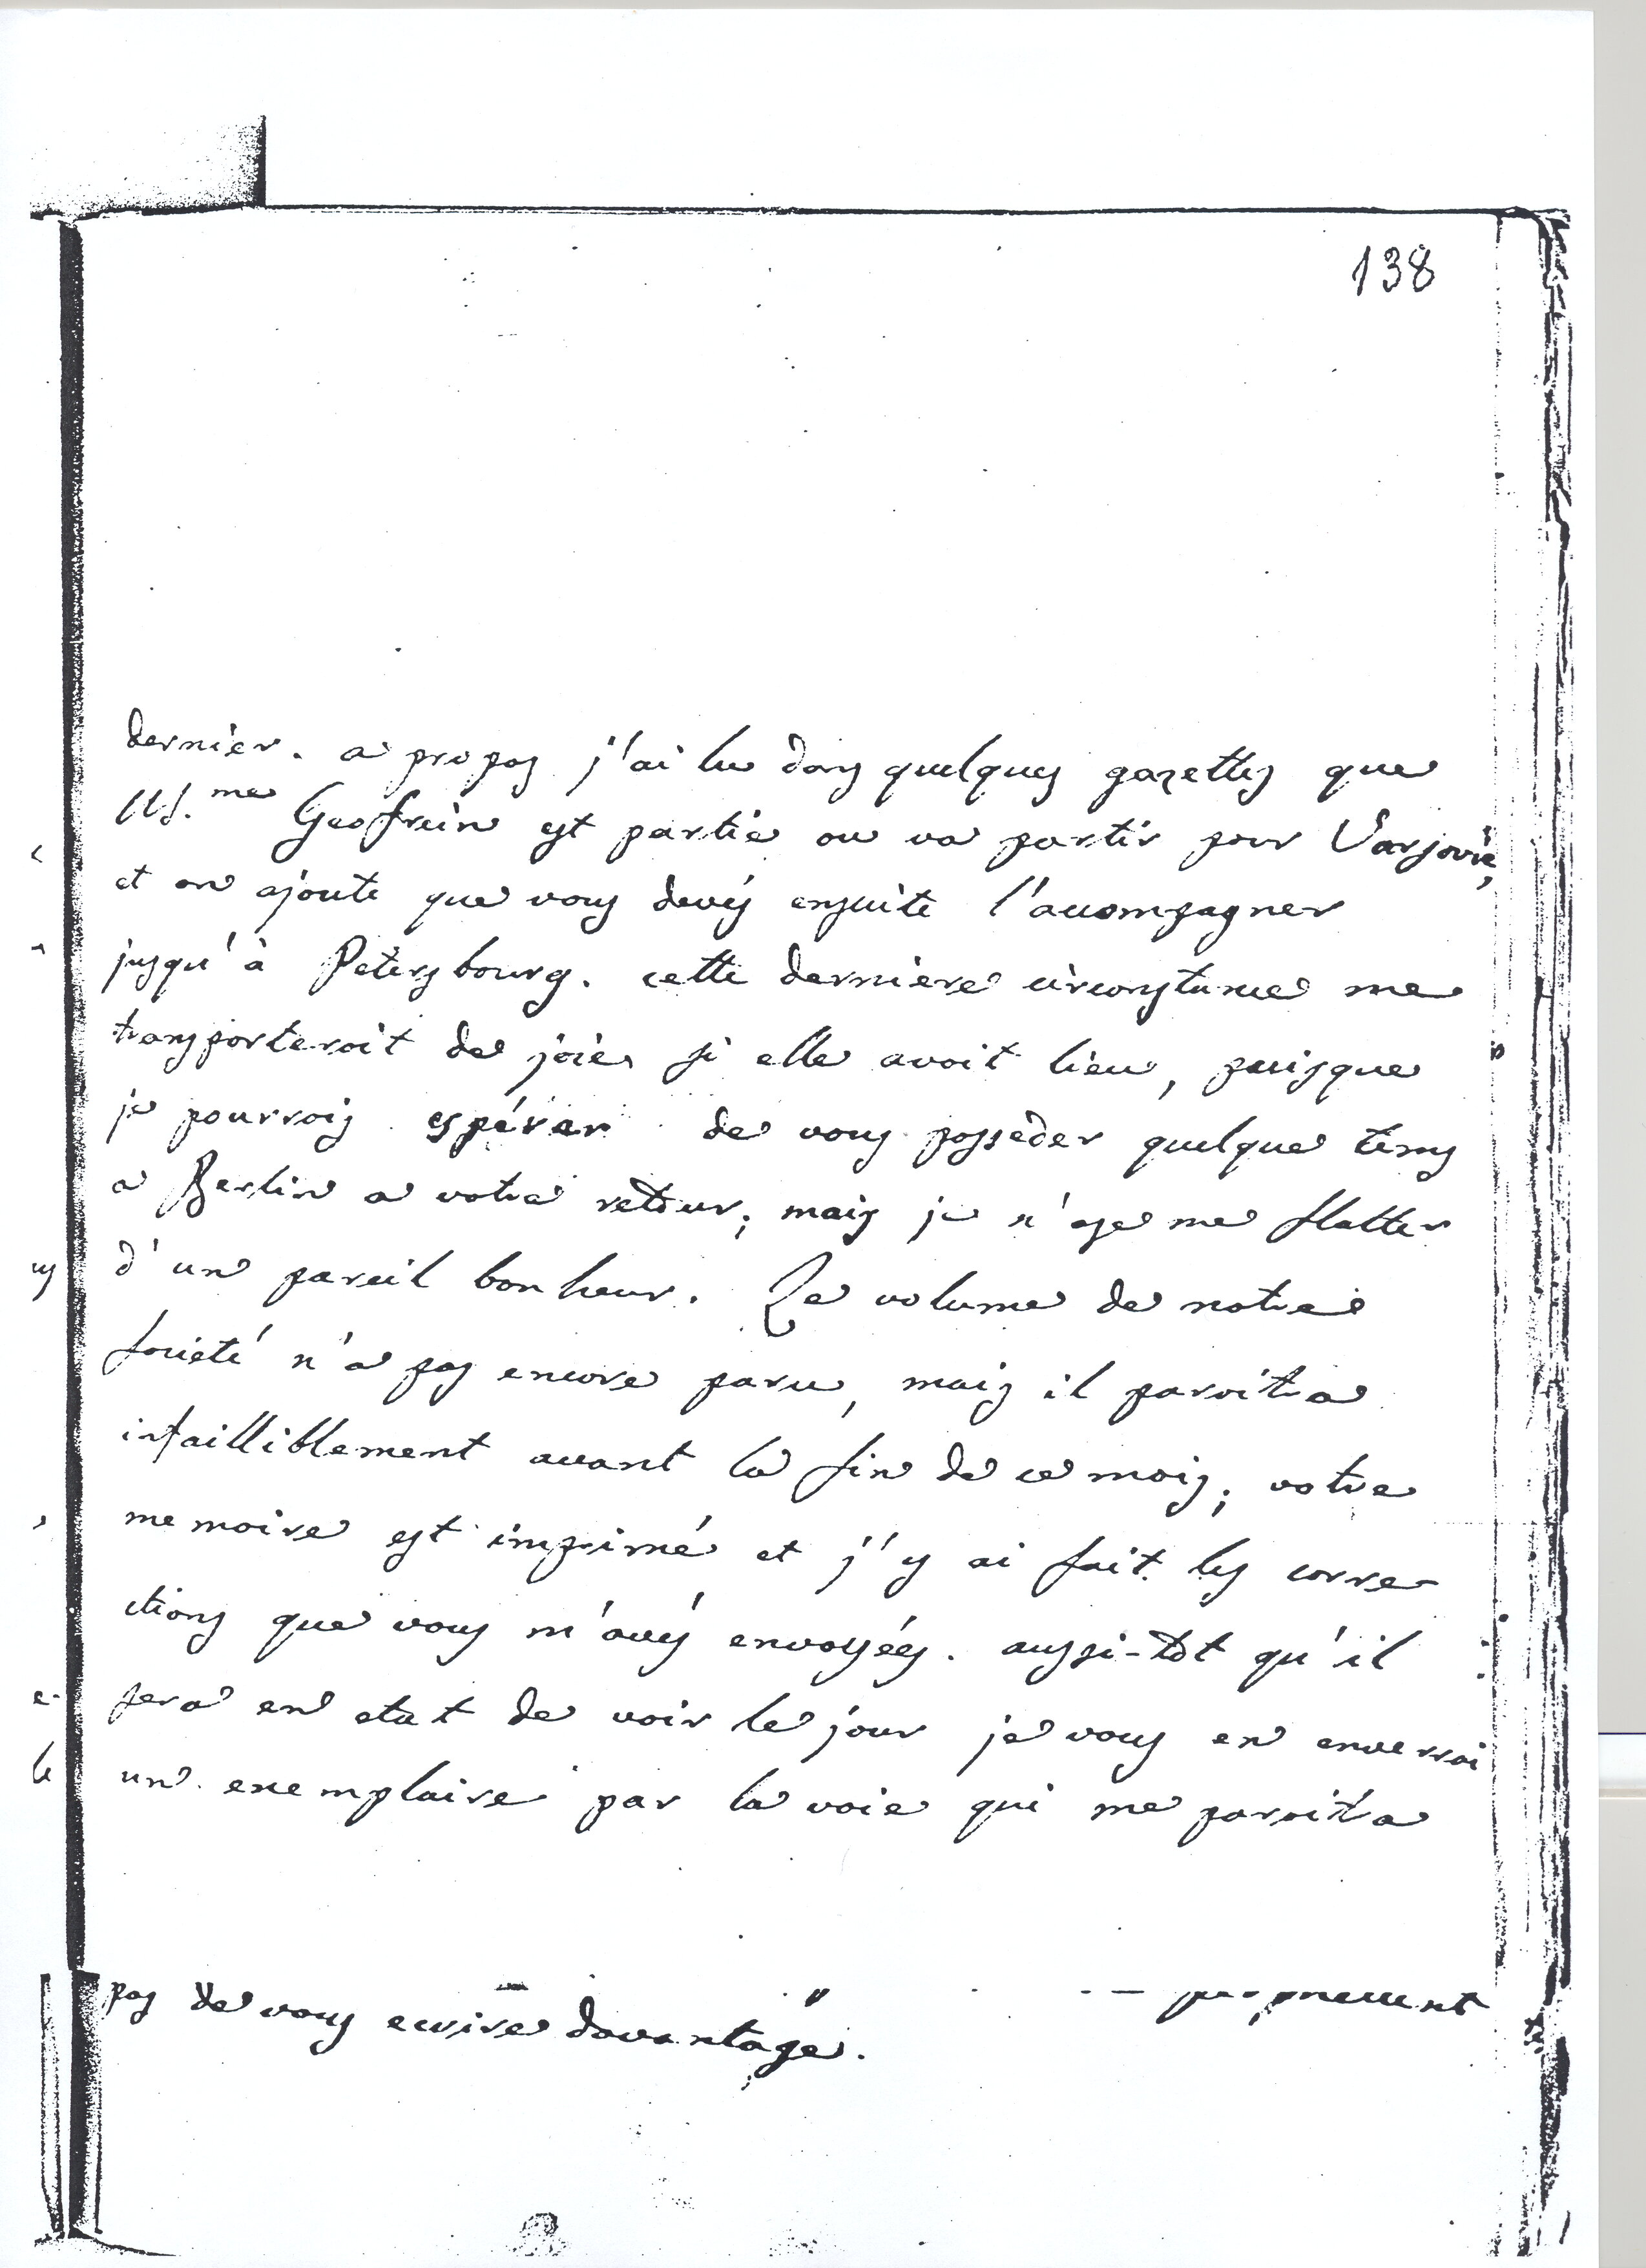 138
dernier. a propos j'ai lu dans quelques gazettes que
M.me Geofrein est partie ou va partir pour Varsovie,
et on ajoute que vous devés ensuite l'accompagner
jusqu'à Petersbourg. cette derniere circonstance me
transporteroit de joie si elle avoit lieu, puisque
je pourrois espérer de vous posseder quelque tems
a Berlin a votre retour; mais je n'ose me flatter
d'un pareil bonheur. Le volume de notre
societé n'a pas encore paru, mais il paroitra
infailliblement avant la fin de ce mois; votre
memoire est imprimé et j'y ai fait les corre-
ctions que vous m'avés envoyées. aussi-tôt qu'il
sera en etat de voir le jour je vous en enverrai
un exemplaire par la voie qui me paroitra
pas de vous ecrire davantage.